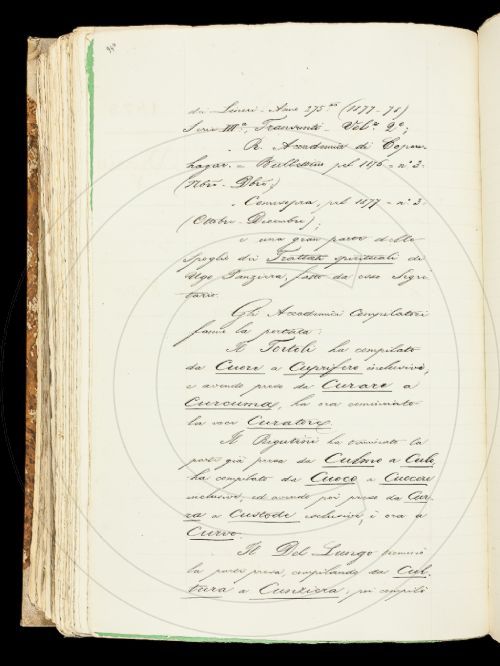 dei Lincei - Anno 275º (1877-78)
Serie IIIª, Transunti - Volº 2º;
- R. Accademia di Copena-
hagen. = Bullettino pel 1876 = nº 2.
(Nbre - Dbre;)
- Comuseppa, pel 1877 = nº 3.
(Ottobre - Dicembre);
e una gran parte dello
Spoglio dei Trattati spirituali di
Ugo Panziera, fatto da esso Segre-
tario.
Gli Accademici Compilatori
fanno la portata:
Il Tortoli ha compilato
da Cuore a Cuprifero inclusive,
e avendo preso da Curare a
Curcuma, ha ora cominciato
la voce Curatore.
Il Rigutini ha terminato la
parte già presa da Culmo a Culo,
ha compilato da Cuoco a Cuocere
inclusive, ed avendo poi preso da Cur-
ra a Custode inclusive, è ora a
Curvo.
Il Del Lungo terminò
la parte presa, compilando da Cul-
tura a Cunziera; poi compilò